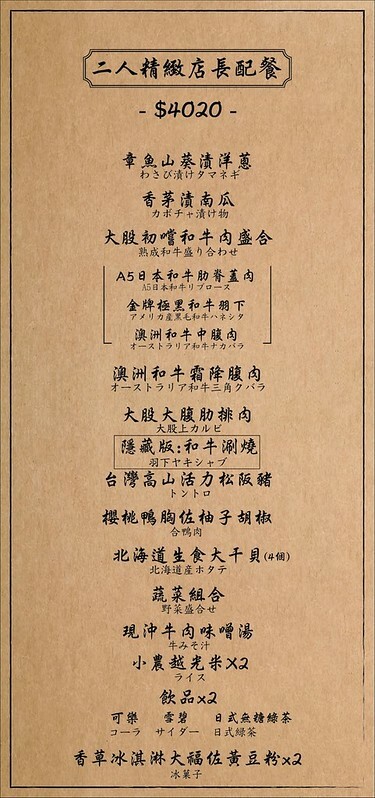 二人精緻店長配餐
- $4020 -
章魚山葵漬洋蔥
わさび漬けタマネギ
香茅漬南瓜
カボチャ漬け物
大股初嚐和牛肉盛合
熟成和牛盛り合わせ
A5日本和牛肋脊蓋肉
A5日本和牛リブロース
金牌極黑和牛羽下
アメリカ産黒毛和牛ハネシタ
澳洲和牛中腹肉
オーストラリア和牛ナカバラ
澳洲和牛霜降腹肉
オーストラリア和牛三角クバラ
大股大腹肋排肉
大股上カルビ
隱藏版:和牛涮燒
羽下ヤキシャブ
台灣高山活力松阪豬
トントロ
櫻桃鴨胸佐柚子胡椒
合鴨肉
北海道生食大干貝(4個)
北海道産ホタテ
蔬菜組合
野菜盛合せ
現沖牛肉味噌湯
牛みそ汁
小農越光米X2
ライス
飲品x2
可樂 雪碧 日式無糖綠茶
コーラ サイダー 日式綠茶
香草冰淇淋大福佐黃豆粉x2
冰菓子